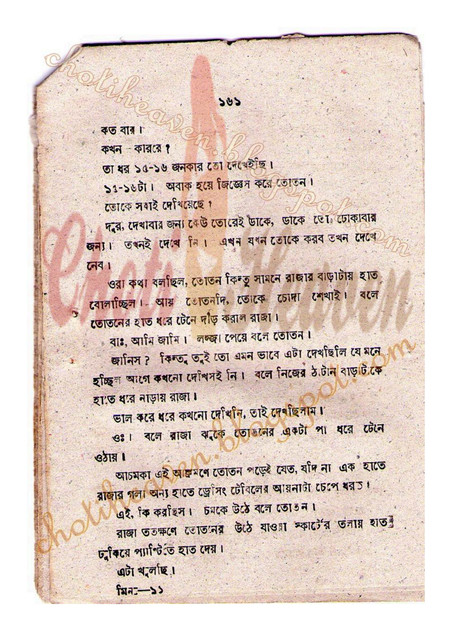 ১৬১
কত বার।
কখন কাররে?
তা ধর ১৫-১৬ জনকার তো দেখেইছি।
১৫-১৬টা। অবাক হয়ে জিজ্ঞেস করে তোতন।
তোকে সবাই দেখিয়েছে?
দূর, দেখাবার জন্য কেউ তোরেই ডাকে, ডাকে তো ঢোকাবার
জন্য। তখনই দেখে নি। এখন যখন তোকে করব তখন দেখে
নেব।
ওরা কথা বলছিল, তোতন কিন্তু সামনে রাজার বাড়াটায় হাত
বোলাচ্ছিল। আয় তোতনদি, তোকে চোদা শেখাই। বলে
তোতনের হাত ধরে টেনে দাঁড় করাল রাজা।
বাঃ, আমি জানি। লজ্জা পেয়ে বলে তোতন।
জানিস? কিন্তু তুই তো এমন ভাবে এটা দেখছিলি যে মনে
হচ্ছিল আগে কখনো দেখিসই নি। বলে নিজের ঠাটান বাড়াটাকে
হাতে ধরে নাড়ায় রাজা।
ভাল করে ধরে কখনো দেখিনি, তাই দেখছিলাম।
ওঃ। বলে রাজা ঝুকে তোতনের একটা পা ধরে টেনে
ওঠায়।
আচমকা এই আক্রমণে তোতন পড়েই যেত, যদি না এক হাতে
রাজার গলা অন্য হাতে ড্রেসিং টেবিলের আয়নাটা চেপে ধরত।
এই, কি করছিস। চমকে উঠে বলে তোতন।
রাজা ততক্ষণে তোতনের উঠে যাওয়া স্কার্টের তলায় হাত
ঢুকিয়ে প্যান্টিতে হাত দেয়।
এটা খুলছি।
মিনা—১১
Choti Heaven
chotiheaven.blogspot.com
chotiheaven.blogspot.com